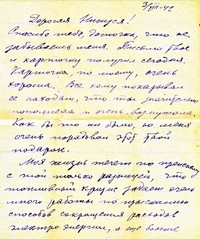 7/VIII-42
Дорогая Нинуся!
Спасибо тебе, доченька, что не
забываешь меня. Письмо твое
и карточку получил сегодня.
Карточка, по моему, очень
хороша. Все кому показывал
ее находят, что ты значительно
пополнела и очень
Как бы то ни было, но меня
очень порадовал этот твой
подарок.
Моя жизнь течет по прежнему
с той только разницей, что
топливный кризис задает очень
много работы по изысканию
способов сокращения расходов
электро энергии, а еще больше